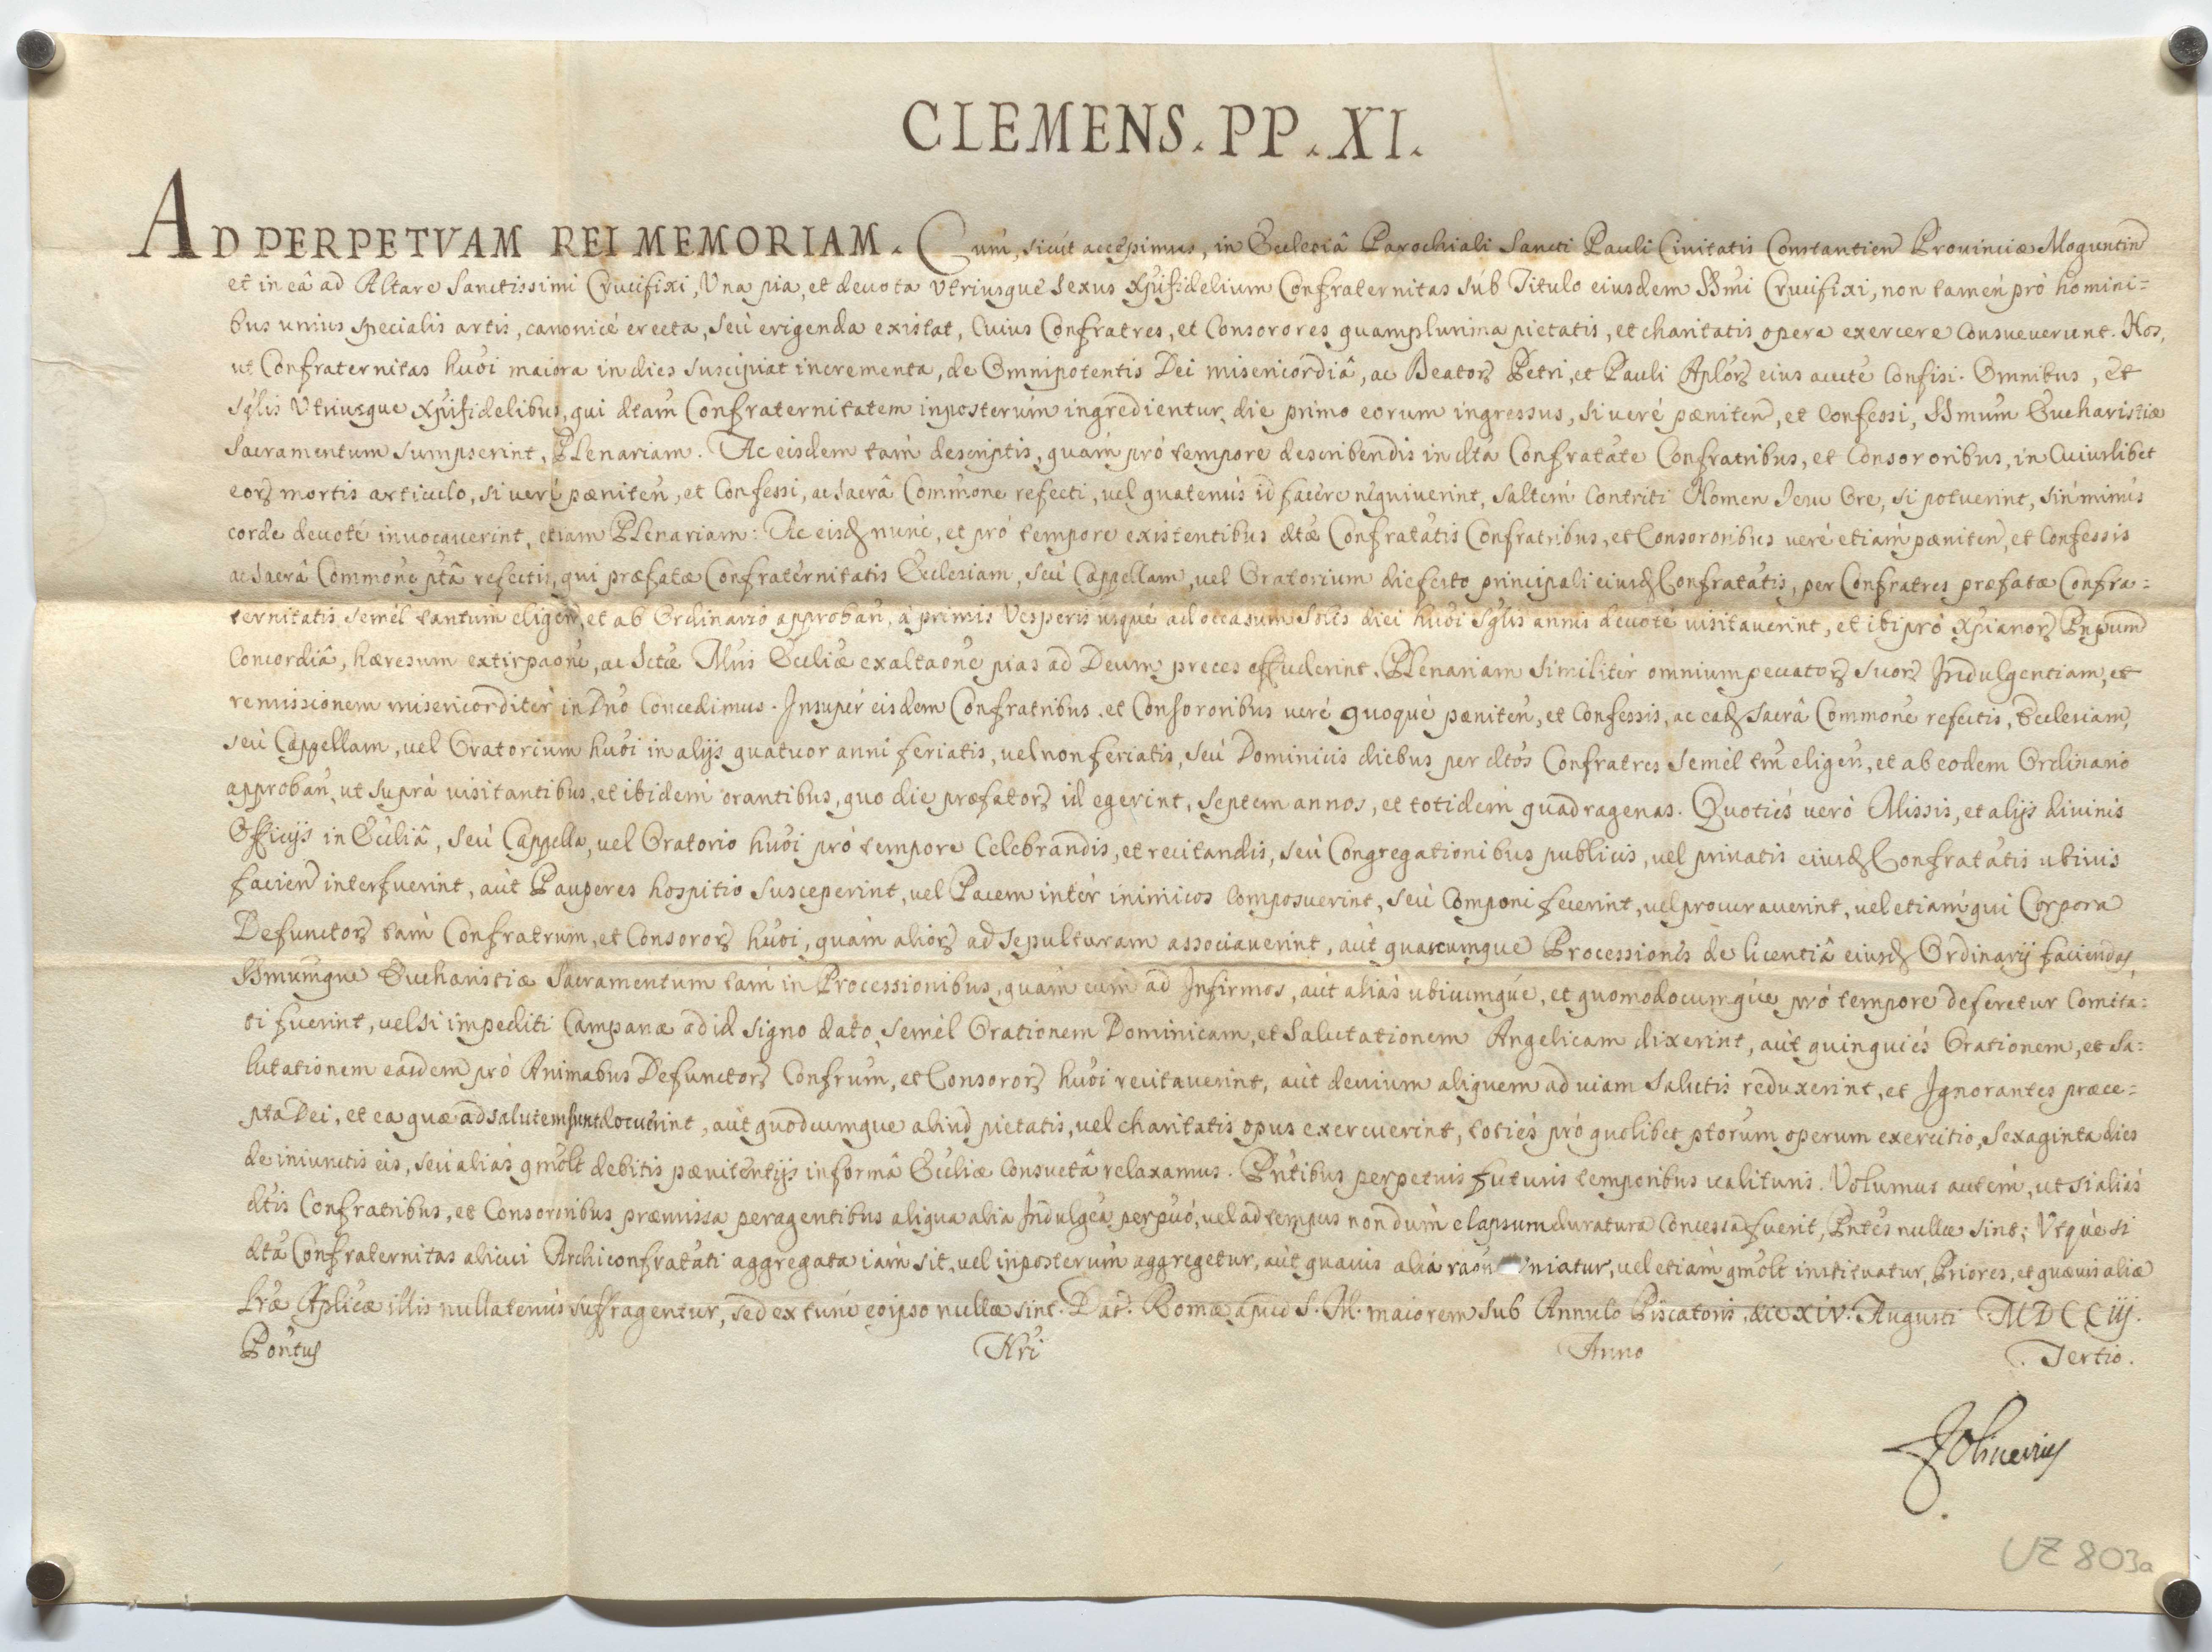 CLEMENS. PP. XI.
AD PERPETVAM REI MEMORIAM. Cum, sicut accepimus, in Ecclesiâ Parochiali Sancti Pauli Civitatis Constantien Provinciæ Moguntin
et in eâ ad Altare Sanctissimi Crucifixi, Una pia, et devota Utriusque Sexus Xpifidelium Confraternitas sub Titulo eiusdem SSmi Crucifixi, non tamen pro homini=
bus unius specialis artis, canonicè erecta, seu erigenda existat, Cuius Confratres, et Consorores quamplurima pietatis, et charitatis opera exercere consueverunt. Nos,
ut Confraternitas huoi maiora in dies suscipiat incrementa, de Omnipotentis Dei misericordiâ, ac Beator Petri, et Pauli Aplor eius aucte Confisi. Omnibus, et
Sglis Utriusque Xpifidelibus, qui dtam Confraternitatem inposterum ingredientur, die primo eorum ingressus, si verè pæniten, et Confessi, SSmum Eucharistiæ
Sacramentum sumpserint, Plenariam. Ac eisdem tam descriptis, quàm pro tempore describendis in dta Confratate Confratribus, et Consororibus, in Cuiuslibet
eor mortis articulo, si verè pæniten, et Confessi, ac Sacrâ Commone refecti, vel quatenus id facere nequiverint, saltem Contriti Nomen Iesu Ore, si potuerint, sin minus
corde devotè invocaverint, etiam Plenariam: Ac eisd nunc, et pro tempore existentibus dtæ Confratatis Confratribus, et Consororibus verè etiam pæniten, et Confessis
ac Sacrâ Commone ptâ refectis, qui præfatæ Confraternitatis Ecclesiam, seu Cappellam, vel Oratorium die festo principali eiusd Confratatis, per Confratres præfatæ Confra=
ternitatis semel tantum eligen, et ab Ordinario approban, à primis Vesperis usque ad occasum Solis diei huoi Sglis annis devotè visitaverint, et ibi pro Xpianor Pnpum
Concordiâ, hæresum extirpaone, ac Sctæ Mris Ecclia exaltaone pias ad Deum preces effuderint. Plenariam similiter omnium peccator suor Indulgentiam, et
remissionem misericorditer in Dno Concedimus. Insuper eisdem Confratribus, et Consororibus verè quoque pæniten, et Confessis, ac ead Sacrâ Commone refectis, Ecclesiam,
seu Cappellam, vel Oratorium huoi in alijs quatuor anni feriatis, vel non feriatis, seu Dominicis diebus per dtos Confratres semel tm eligen, et ab eodem Ordinario
approban, ut suprà visitantibus, et ibidem orantibus, quo die præfator id egerint, septem annos, et totidem quadragenas. Quoties verò Missis, et alijs divinis
Officijs in Eccliâ, seu Cappella, vel Oratorio huoi pro tempore Celebrandis, et recitandis, seu Congregationibus publicis, vel privatis eiusd Confratatis ubivis
facien interfuerint, aut Pauperes hospitio susceperint, vel Pacem inter inimicos composuerint, seu Componi fecerint, vel procuraverint, vel etiam qui Corpora
Defunctor tam Confratrum, et Consoror huoi, quàm alior ad sepulturam associaverint, aut quascumque Processiones de licentiâ eiusd Ordinarij faciendas,
SSmumque Eucharistiæ Sacramentum tam in Processionibus, quàm cum ad Infirmos, aut alias ubicumque, et quomodocumque pro tempore deferetur Comita=
ti fuerint, vel si impediti Campanæ ad id signo dato, semel Orationem Dominicam, et Salutationem Angelicam dixerint, aut quinquies Orationem, et Sa=
lutationem easdem pro Animabus Defunctor Confrum, et Consoror huoi recitaverint, aut devium aliquem ad viam salutis reduxerint, et Ignorantes præce=
pta Dei, et ea quæ ad salutem sunt docuerint, aut quodcumque aliud pietatis, vel charitatis opus exercuerint, toties pro quolibet ptorum operum exercitio, Sexaginta dies
de iniunctis eis, seu alias qmolt debitis pænitentijs in formâ Eccliæ consuetâ relaxamus. Pntibus perpetuis futuris temporibus valituris. Volumus autem, ut si alias
dtis Confratribus, et Consororibus præmissa peragentibus aliqua alia Indulgea perpuò, vel ad tempus nondum elapsum duratura concessa fuerit, Pntes nullæ sint; Utque si
dta Confraternitas alicui Archiconfratati aggregata iam sit, vel inposterum aggregetur, aut quavis alia raon niatur, vel etiam qmolt instituatur, Priores, et quævis aliæ
Lræ Aplicæ illis nullatenus suffragentur, sed ex tunc eo ipso nullæ sint. Dat. Romæ apud S. M. maiorem sub Annulo Piscatoris die XIV. Augusti MDCCiij.
Pontus Nri Anno Tertio.
F Oliverius
UZ 803a